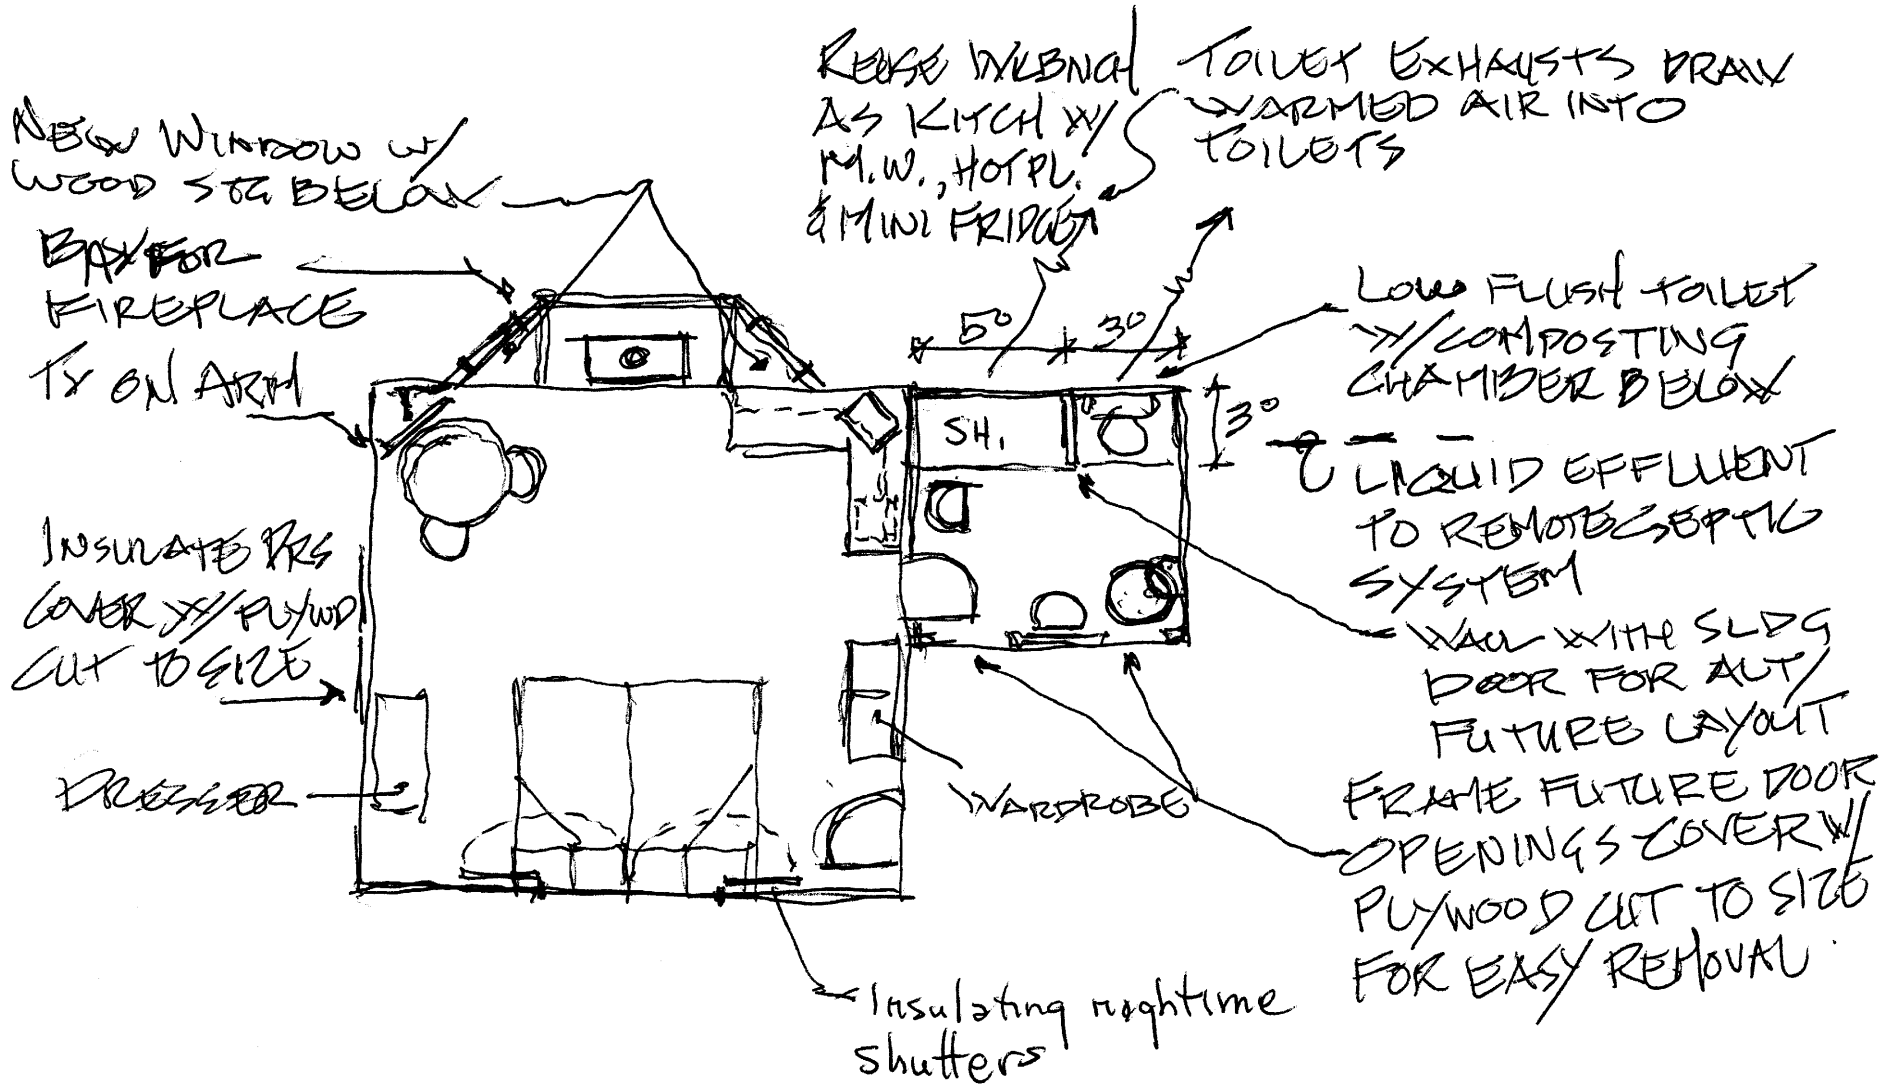 NEW WINDOW W/
WOOD STG BELOW
BAY FOR
FIREPLACE
TV ON ARM
INSULATE DRS
COVER W/ PLYWD
CUT TO SIZE
DRESSER
REUSE WKBNCH
AS KITCH W/
M.W., HOT PL.
& MINI FRIDGE
TOILET EXHAUSTS DRAW
WARMED AIR INTO
TOILETS
5⁰
3⁰
3⁰
SH.
LOW FLUSH TOILET
W/ COMPOSTING
CHAMBER BELOW
LIQUID EFFLUENT
TO REMOTE SEPTIC
SYSTEM
WALL WITH SLDG
DOOR FOR ALT/
FUTURE LAYOUT
WARDROBE
FRAME FUTURE DOOR
OPENINGS COVER W/
PLYWOOD CUT TO SIZE
FOR EASY REMOVAL.
Insulating nightime
shutters